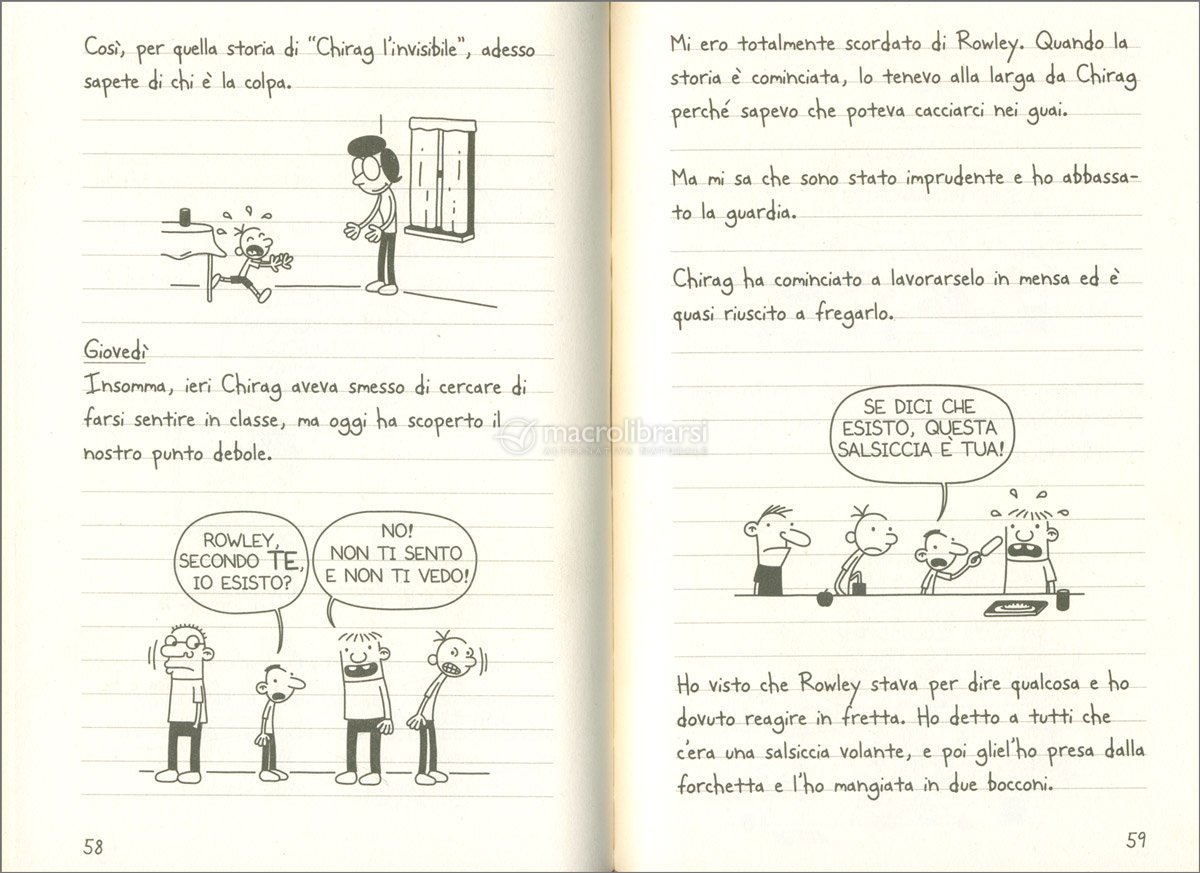 Così, per quella storia di "Chirag l'invisibile", adesso
sapete di chi è la colpa.
Giovedì
Insomma, ieri Chirag aveva smesso di cercare di
farsi sentire in classe, ma oggi ha scoperto il
nostro punto debole.
ROWLEY,
SECONDO TE,
IO ESISTO?
NO!
NON TI SENTO
E NON TI VEDO!
58
Mi ero totalmente scordato di Rowley. Quando la
storia è cominciata, lo tenevo alla larga da Chirag
perché sapevo che poteva cacciarci nei guai.
Ma mi sa che sono stato imprudente e ho abbassa-
to la guardia.
Chirag ha cominciato a lavorarselo in mensa ed è
quasi riuscito a fregarlo.
SE DICI CHE
ESISTO, QUESTA
SALSICCIA È TUA!
Ho visto che Rowley stava per dire qualcosa e ho
dovuto reagire in fretta. Ho detto a tutti che
c'era una salsiccia volante, e poi gliel'ho presa dalla
forchetta e l'ho mangiata in due bocconi.
59
macrolibrarsi
ALTERNATIVA NATURALE